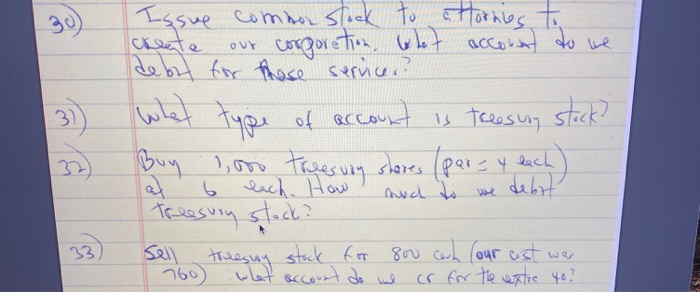 30) Issue common stock to attornies to
create our corporation. What account do we
debit for these services?
31) What type of account is treasury stock?
32) Buy 1,000 treasury shares (par = 4 each)
at 6 each. How much do we debit
treasury stock?
33) Sell treasury stock for 800 cash (our cost was
760) what account do we cr for the extra 40?